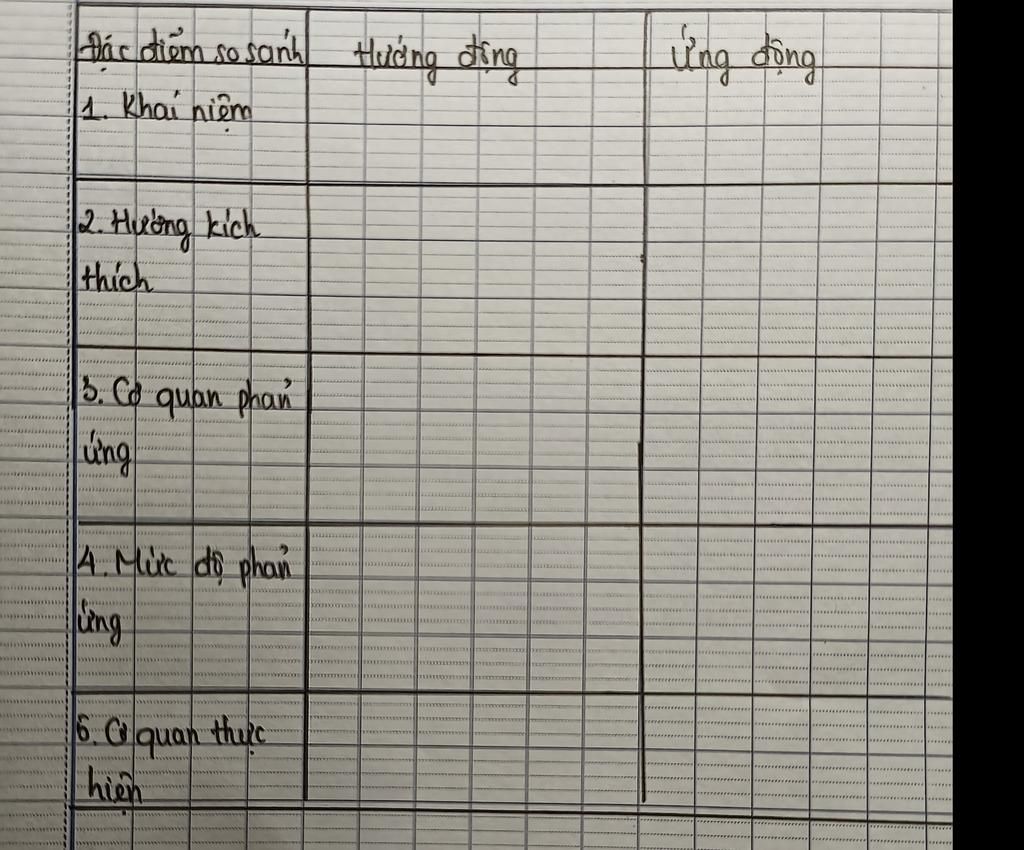 Đặc điểm so sánh Hướng động Ứng động
1. Khái niệm
2. Hướng kích
thích
3. Cơ quan phản
ứng
4. Mức độ phản
ứng
5. Cơ quan thực
hiện